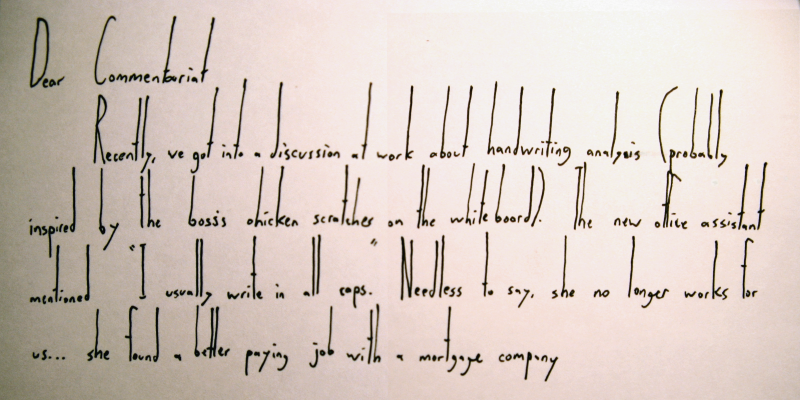 Dear Commentariat
Recently, we got into a discussion at work about handwriting analysis (probably
inspired by the boss's chicken scratches on the whiteboard). The new office assistant
mentioned "I usually write in all caps." Needless to say, she no longer works for
us... she found a better paying job with a mortgage company